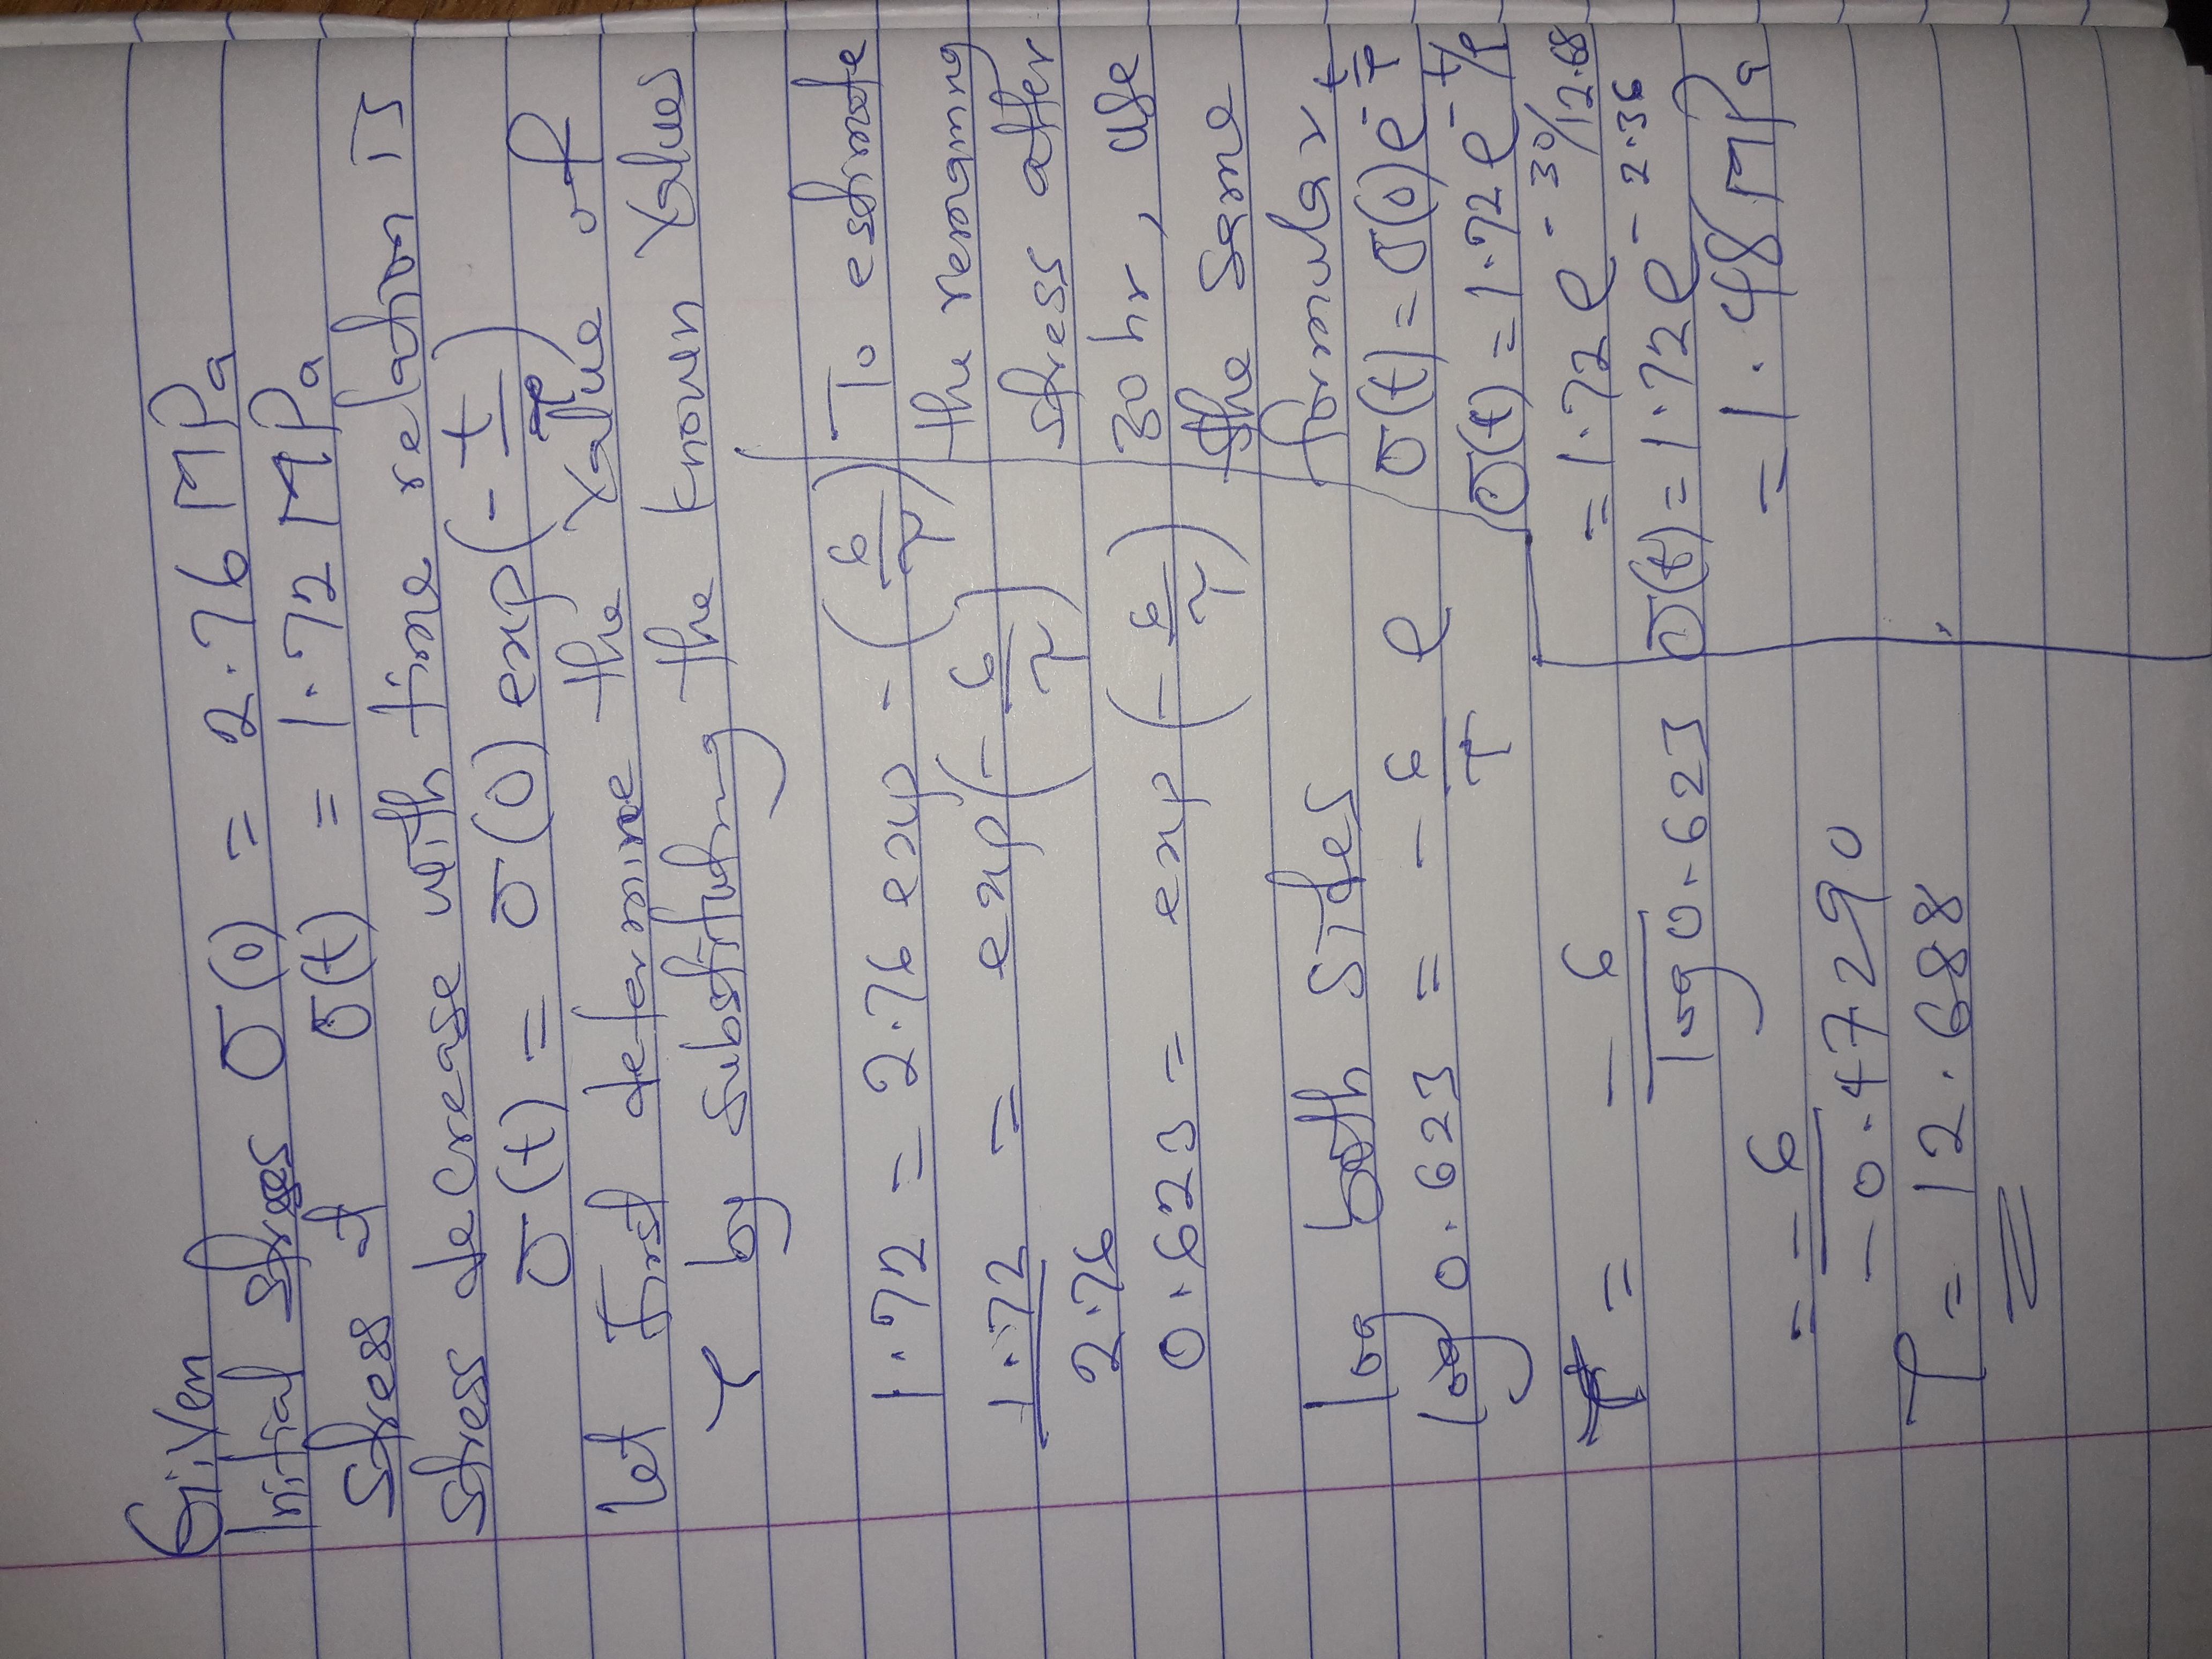 Given
Initial stress σ(0) = 2.76 MPa
Stress σ(t) = 1.72 MPa
Stress decrease with time relation is
σ(t) = σ(0) exp(-t/τ)
Let first determine the value of
τ by substituting the known values
1.72 = 2.76 exp - (6/τ)
1.72/2.76 = exp(-6/τ)
0.623 = exp(-6/τ)
log both sides
log 0.623 = -6/τ e
τ = -6/log 0.623
= -6/-0.47290
τ = 12.688
To estimate
the remaining
stress after
30 hr, use
the same
formular
σ(t) = σ(0) e^-t/τ
σ(t) = 1.72 e^-t/τ
= 1.72 e^-30/12.68
σ(t) = 1.72 e^-2.36
= 1.48 MPa